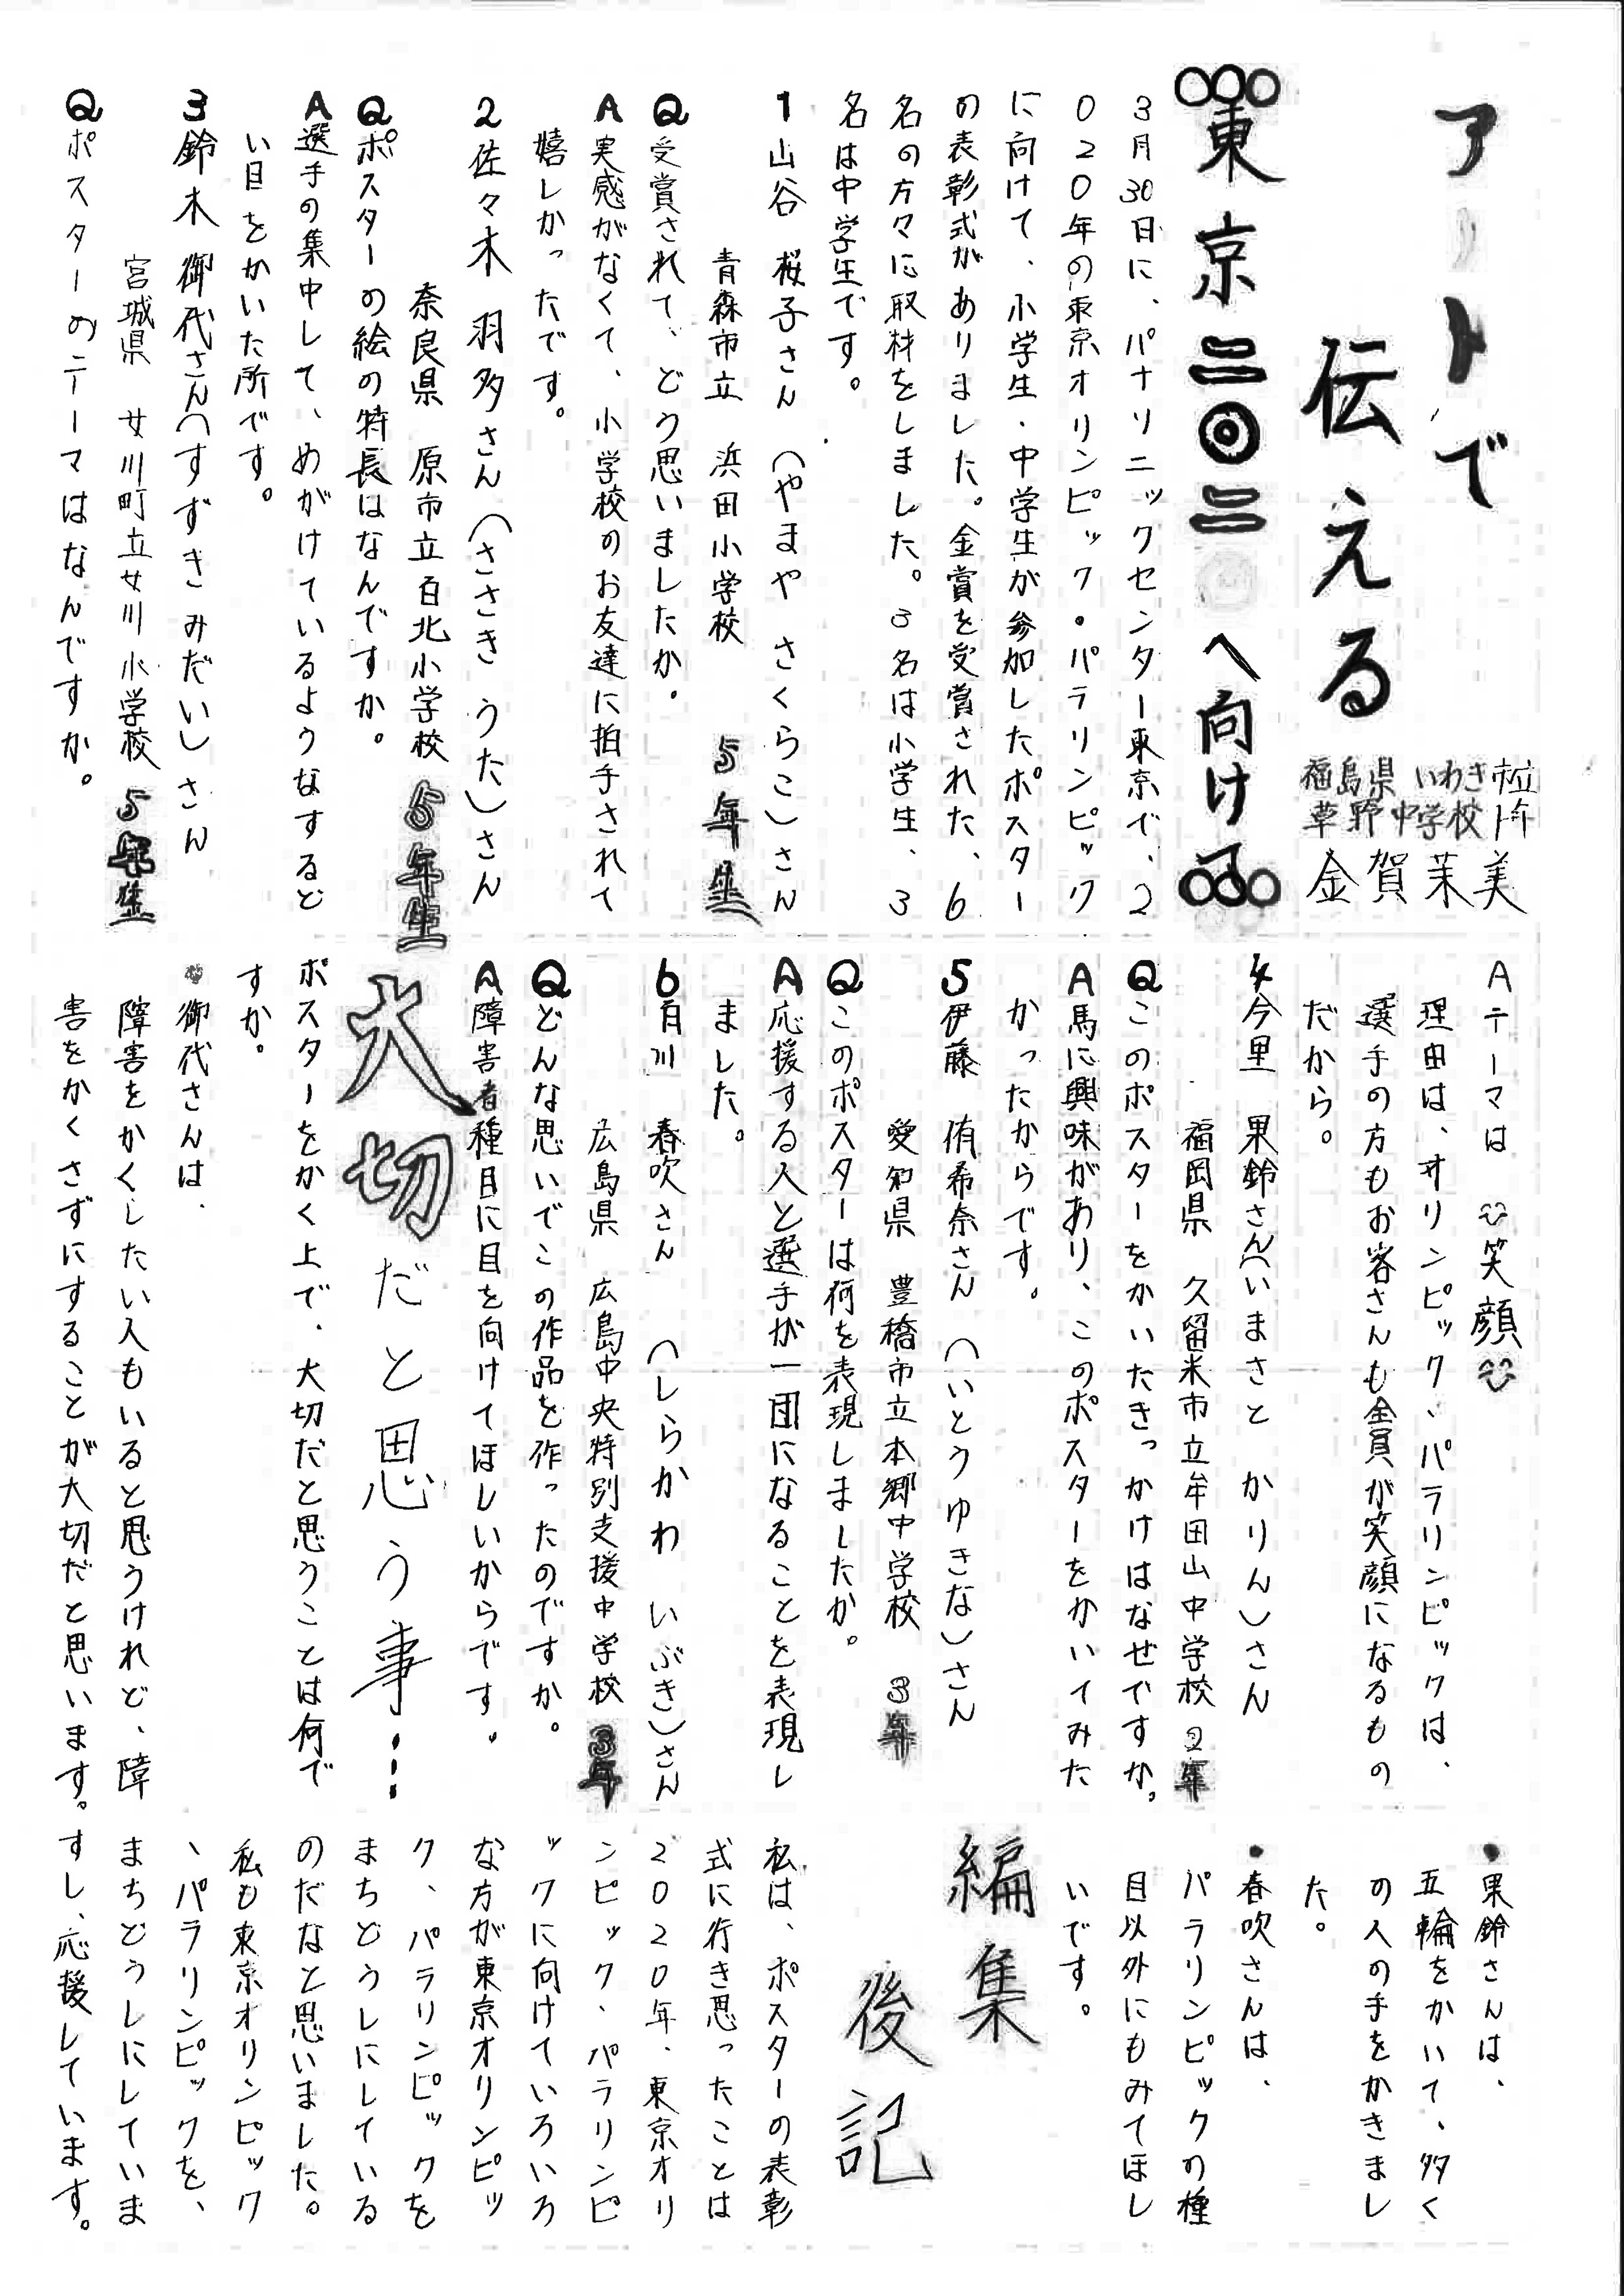 アートで
伝える
福島県 いわき市立
草野中学校
金賀茉美
東京二〇二〇へ向けて
3月30日に、パナソニックセンター東京で、2
020年の東京オリンピック・パラリンピック
に向けて、小学生、中学生が参加したポスター
の表彰式がありました。金賞を受賞された、6
名の方々に取材をしました。3名は小学生、3
名は中学生です。
1山谷 桜子さん(やまや さくらこ)さん
青森市立 浜田小学校 5年生
Q受賞されて、どう思いましたか。
A実感がなくて、小学校のお友達に拍手されて
嬉しかったです。
2佐々木 羽多さん(ささき うた)さん
奈良県 原市立百北小学校 5年生
Qポスターの絵の特長はなんですか。
A選手の集中して、めがけているようなするど
い目をかいた所です。
3鈴木 御代さん(すずき みだい)さん
宮城県 女川町立女川小学校 5年生
Qポスターのテーマはなんですか。
Aテーマは 笑顔
理由は、オリンピック、パラリンピックは、
選手の方もお客さんも全員が笑顔になるもの
だから。
4今里 果鈴さん(いまさと かりん)さん
福岡県 久留米市立牟田山中学校 2年
Qこのポスターをかいたきっかけはなぜですか。
A馬に興味があり、このポスターをかいてみた
かったからです。
5伊藤 侑希奈さん (いとうゆきな)さん
愛知県 豊橋市立本郷中学校 3年
Qこのポスターは何を表現しましたか。
A応援する人と選手が一団になることを表現し
ました。
6白川 春吹さん (しらかわ いぶき)さん
広島県 広島中央特別支援中学校 3年
Qどんな思いでこの作品を作ったのですか。
A障害者種目に目を向けてほしいからです。
大切だと思う事…
ポスターをかく上で、大切だと思うことは何で
すか。
・御代さんは、
障害をかくしたい人もいると思うけれど、障
害をかくさずにすることが大切だと思います。
・果鈴さんは、
五輪をかいて、多く
の人の手をかきまし
た。
・春吹さんは、
パラリンピックの種
目以外にもみてほし
いです。
編集
後記
私は、ポスターの表彰
式に行き思ったことは
2020年、東京オリ
ンピック、パラリンピ
ックに向けていろいろ
な方が東京オリンピッ
ク、パラリンピックを
まちどうしにしている
のだなと思いました。
私も東京オリンピック
、パラリンピックを、
まちどうしにしていま
すし、応援しています。